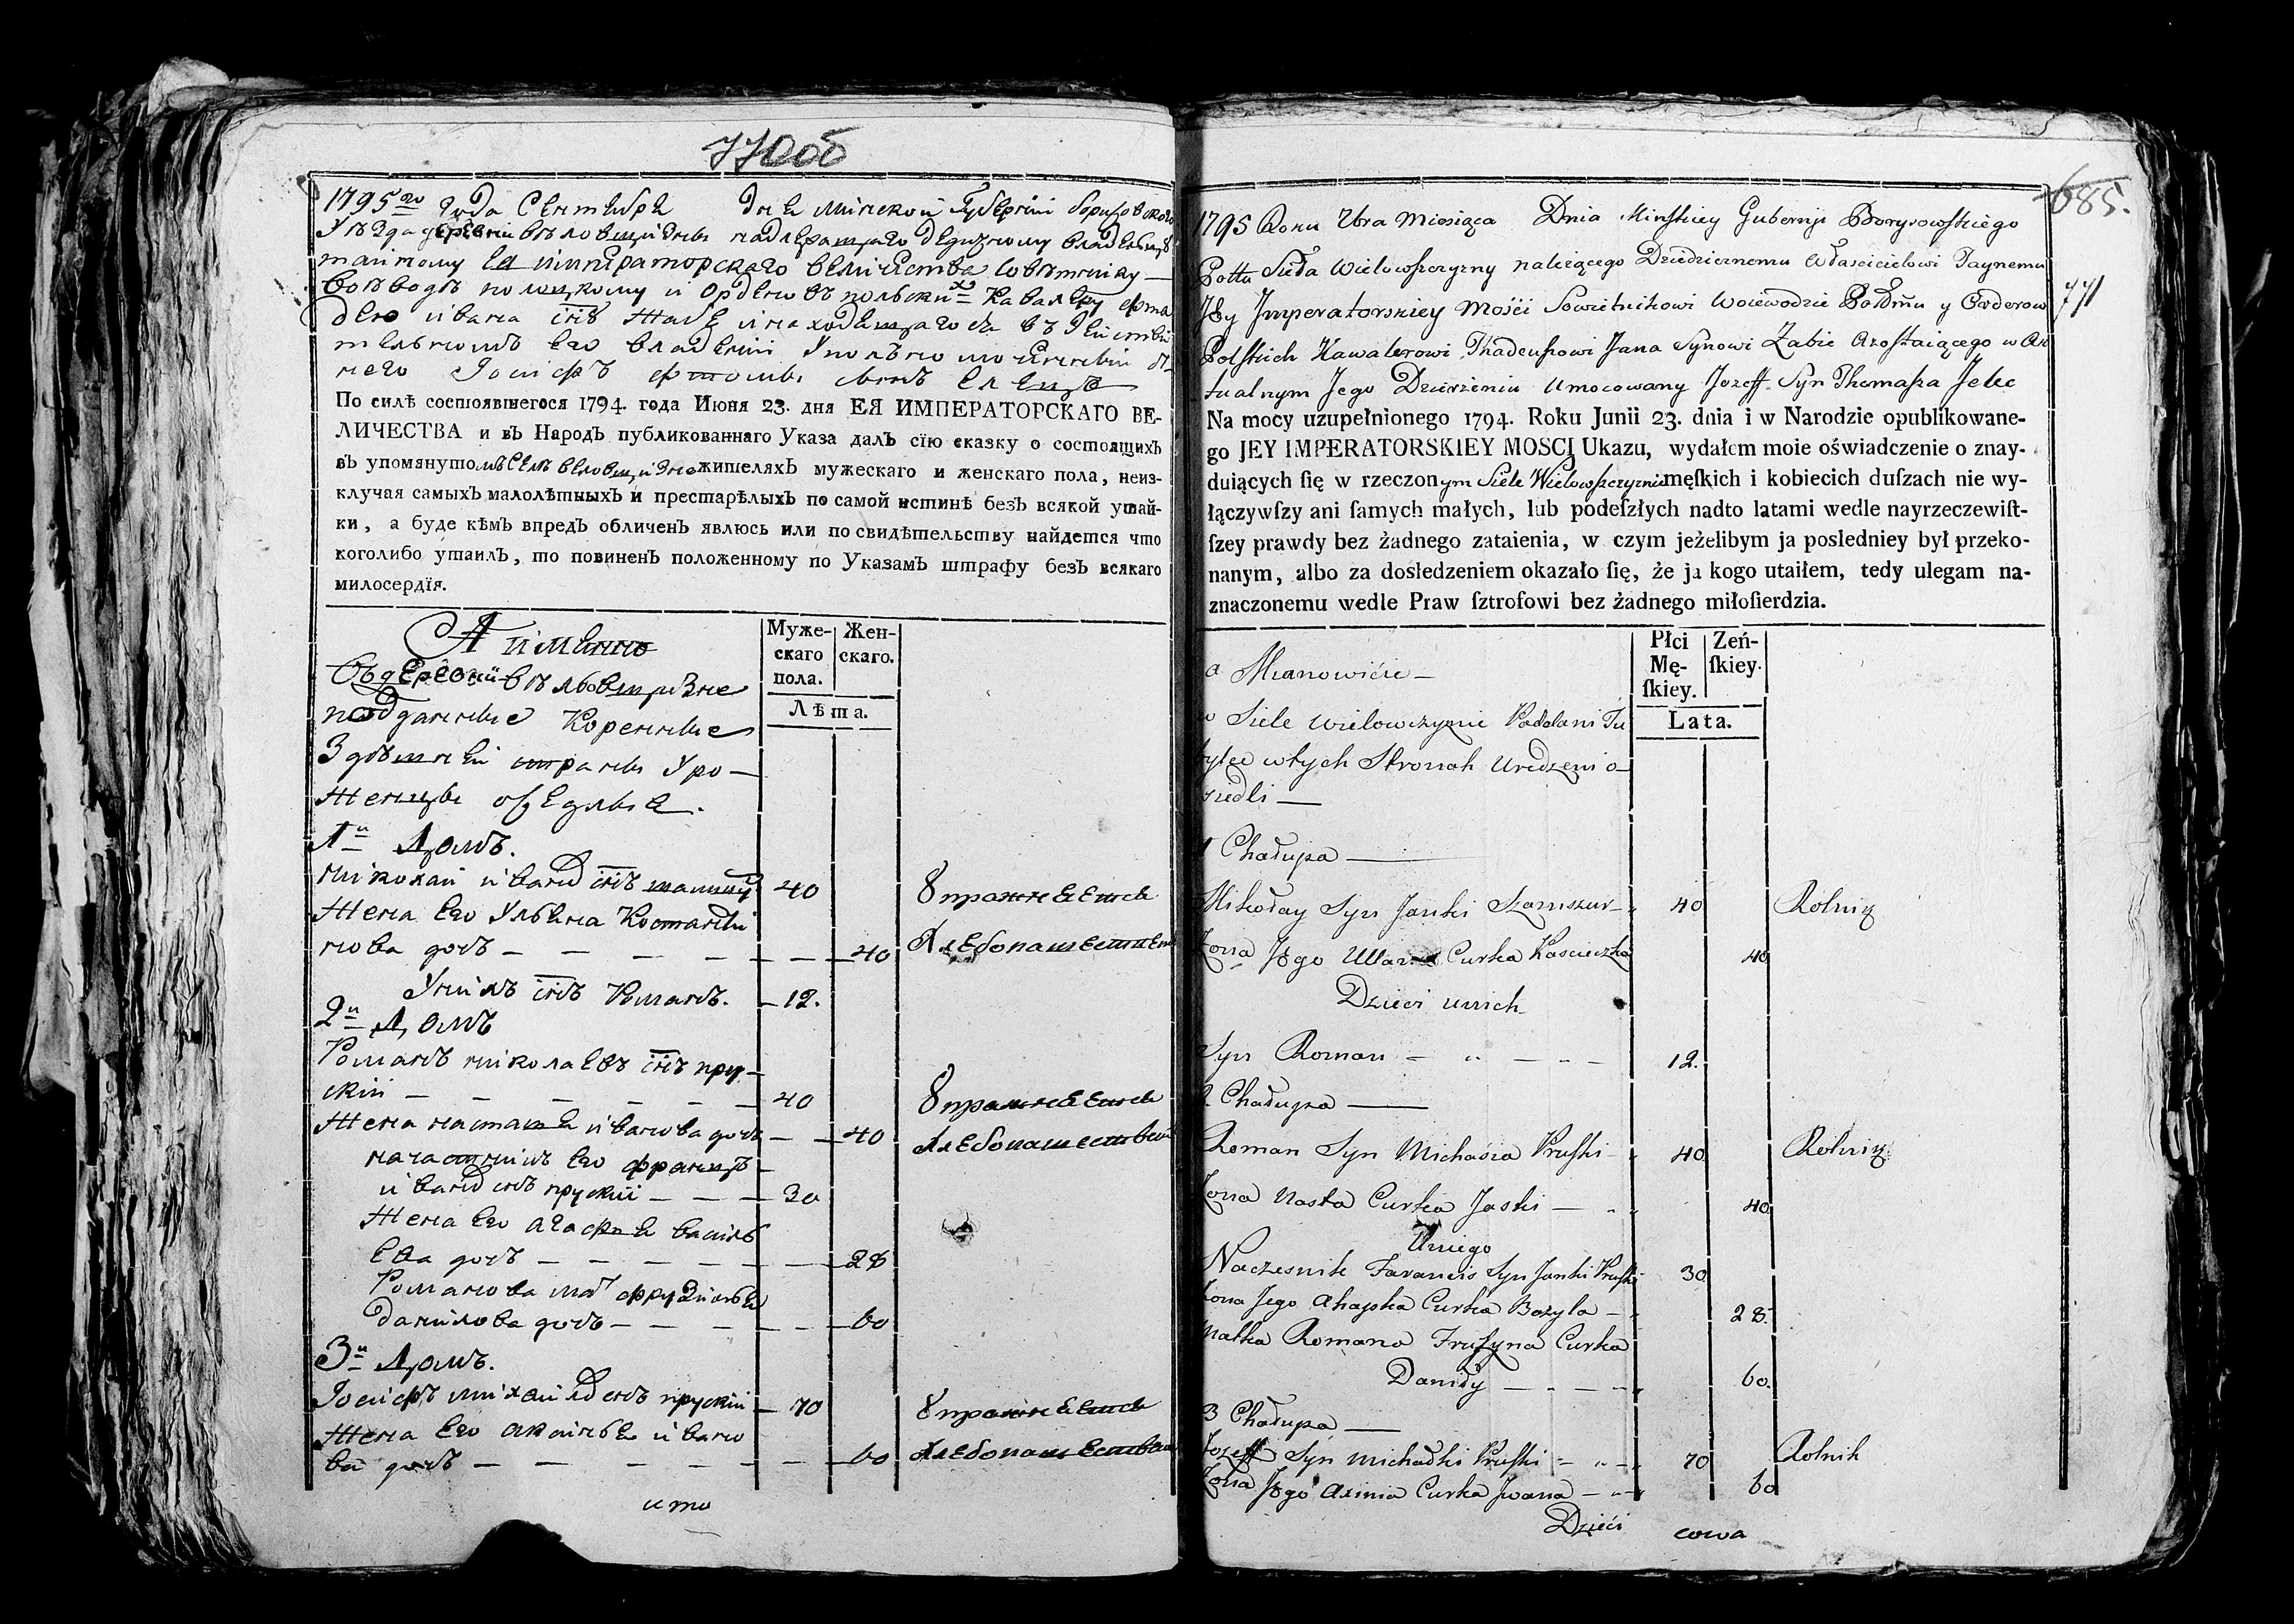 770об
1795го года Сентября дня минской Губернiи борисовского
Уезда деревни веловщизны надлежащаго дедизному владельцу
тайному Ея императорскаго величества Советнику
воеводе полоцкому и Орденовъ польскихъ Кавалеру фта
дею ивана сiнъ жабе инаходящагося въ действи
тельномъ его владенiи Уполномоченный от
него Iосифъ фтомы сынъ Еленцъ
По силѣ состоявшегося 1794. года Июня 23. дня ЕЯ ИМПЕРАТОРСКАГО ВЕ-
ЛИЧЕСТВА и въ Народъ публикованнаго Указа далъ сїю сказку о состоящихъ
въ упомянутомъ Селе веловщизне жителяхъ мужескаго и женскаго пола, неиз-
ключая самыхъ малолѣтныхъ и престарѣлыхъ по самой истинѣ безъ всякой утай-
ки, а буде кѣмъ впредъ обличенъ явлюсь или по свидѣтельству найдется что
коголибо утаилъ, то повиненъ положенному по Указамъ штрафу безъ всякаго
милосердїя.
А имянно
Муже-
скаго
пола.
Жен-
скаго.
Лѣта.
Въ деревни вельовщизне
подданные Коренные
Здешней страны Уро-
женцы оседлыя.
1й Домъ.
николай ивановъ сiнъ шамшур 40 Упражняется
жена Его Ульяна Костанти
нова дочь — 40 Хлебопашествомъ
У нихъ сiнъ Романъ. 12.
2й Домъ
Романъ николаевъ сiнъ пру-
скiй — 40 Упражняется
жена настася иванова дочь — 40 Хлебопашествомъ
начастникъ Его францъ
ивановъ сiнъ прускiй — 30
жена Его агафiя василь
ева дочь — 28
Романова мать фрузинья
данилова дочь — 60
3й Домъ.
Iосифъ михайловъ сiнъ прускiй — 70 Упражняется
жена Его аксинья ивано
ва дочь — 60 Хлебопашествомъ
ито
685.
771
1795 Roku 7bra Miesiąca Dnia Minskiey Gubernji Borysowskiego
Pottu Siła Wielowszczyzny należącego Dziedzicznemu Właścicielowi Taynemu
Jey Imperatorskiey Mości Sowietnikowi Woiewodzie Połockmu y Orderow
Polskich Kawalerowi Thadeuszowi Jana Synowi Żabie Azostaiącego w Ak
tualnym Jego Dzierżeniu Umocowany Jozeff Syn Thomasza Jelec
Na mocy uzupełnionego 1794. Roku Junii 23. dnia i w Narodzie opublikowane-
go JEY IMPERATORSKIEY MOSCI Ukazu, wydałem moie oświadczenie o znay-
duiących ſię w rzeczonym Siele Wielowszczyznie męſkich i kobiecich duſzach nie wy-
łączywſzy ani ſamych małych, lub podeſzłych nadto latami wedle nayrzeczewiſt-
ſzey prawdy bez żadnego zataienia, w czym jeżelibym ja posledniey był przeko-
nanym, albo za dosledzeniem okazało ſię, że ja kogo utaiłem, tedy ulegam na-
znaczonemu wedle Praw ſztrofowi bez żadnego miłoſierdzia.
a Mianowicie
Płci
Mę-
ſkiey.
Zeń-
ſkiey.
Lata.
w Siele Wielowczyznie Poddani Tu
tylce wtych Stronah Urodzeni o-
siedli
1 Chałupa
Mikołay Syn Janki Szamszur 40 Rolnik
Żona Jego Ullana Curka Kascieczka 40
Dzieci unich
Syn Roman 12.
2. Chałupa
Roman Syn Michasia Pruski 40 Rolnik
Żona Nasta Curka Jaski 40
Uniego
Naczesnik Farancis Syn Janki Pruski 30
Żona Jego Ahapka Curka Bazyla 28.
Matka Romana Fruzyna Curka
Daniły 60.
3 Chałupa
Jozeff Syn Michałki Pruski 70 Rolnik
Żona Jego Axinia Curka Jwana 60
Dzieci cowa